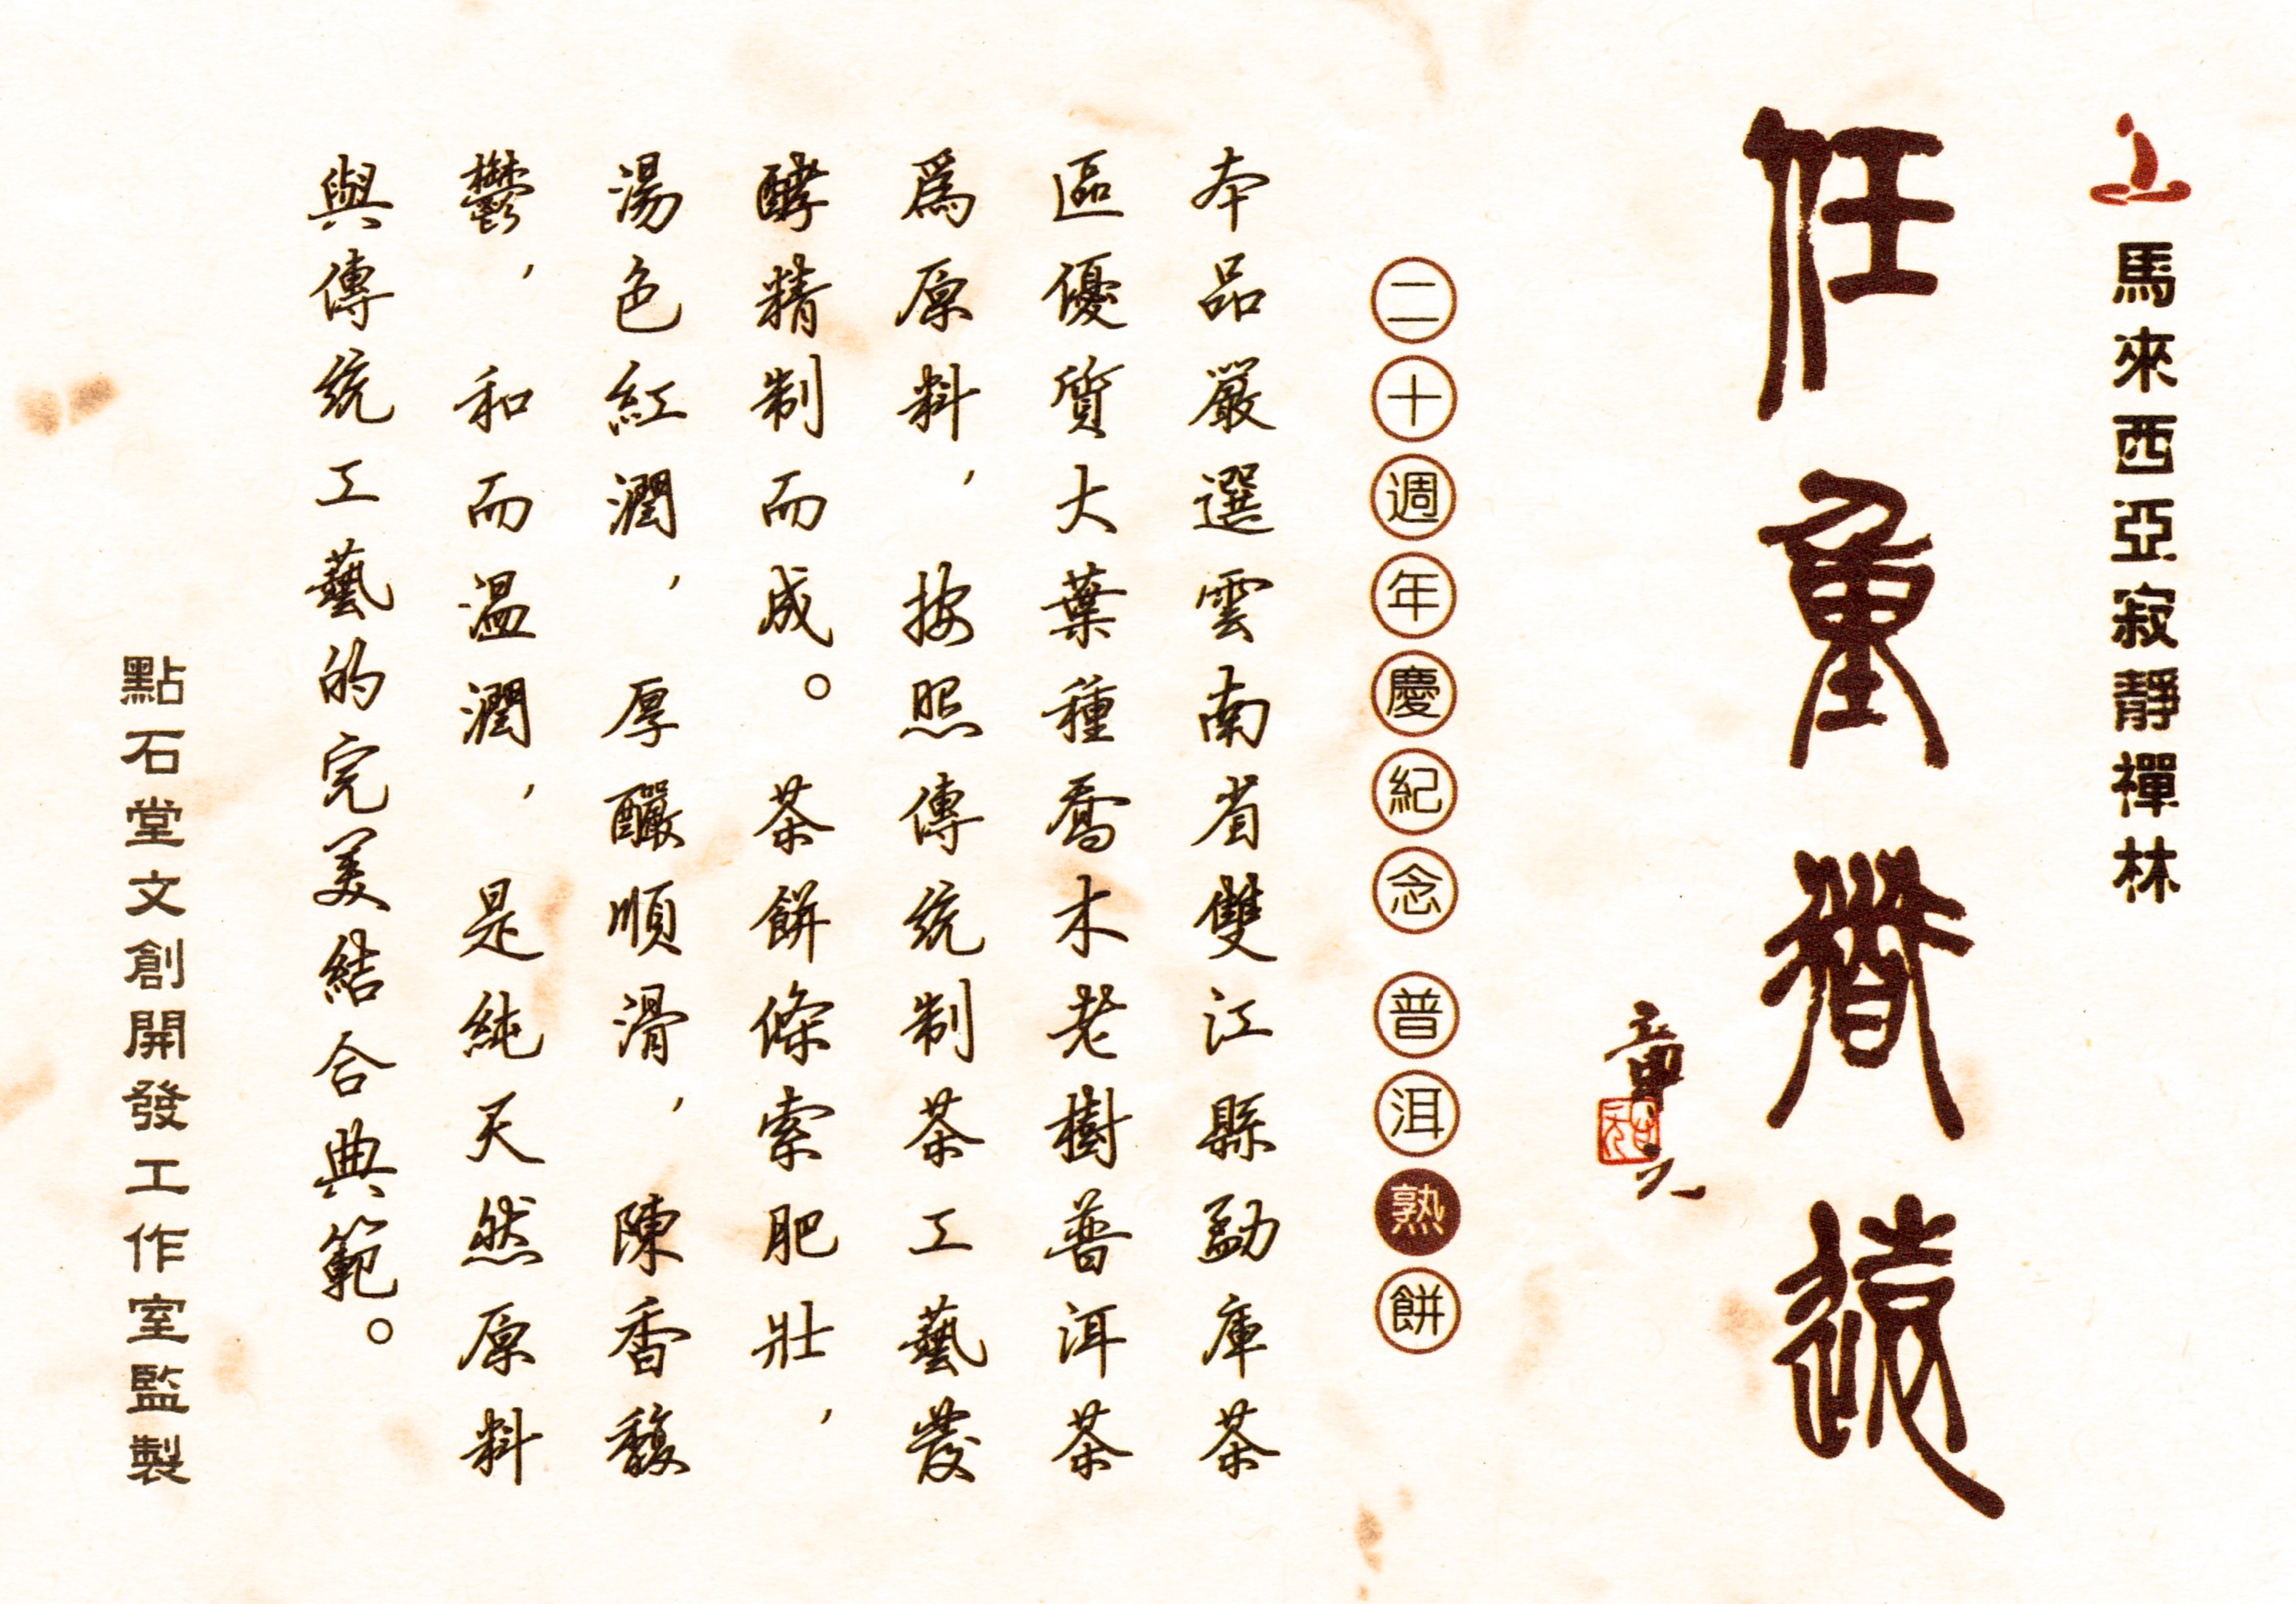 馬來西亞寂靜禪林
任重道遠
二十週年慶紀念 普洱熟餅
本品嚴選雲南省雙江縣勐庫茶
區優質大葉種喬木老樹普洱茶
爲原料，按照傳統制茶工藝發
酵精制而成。茶餅條索肥壯，
湯色紅潤，厚釅順滑，陳香馥
鬱，和而溫潤，是純天然原料
與傳統工藝的完美結合典範。
點石堂文創開發工作室監製